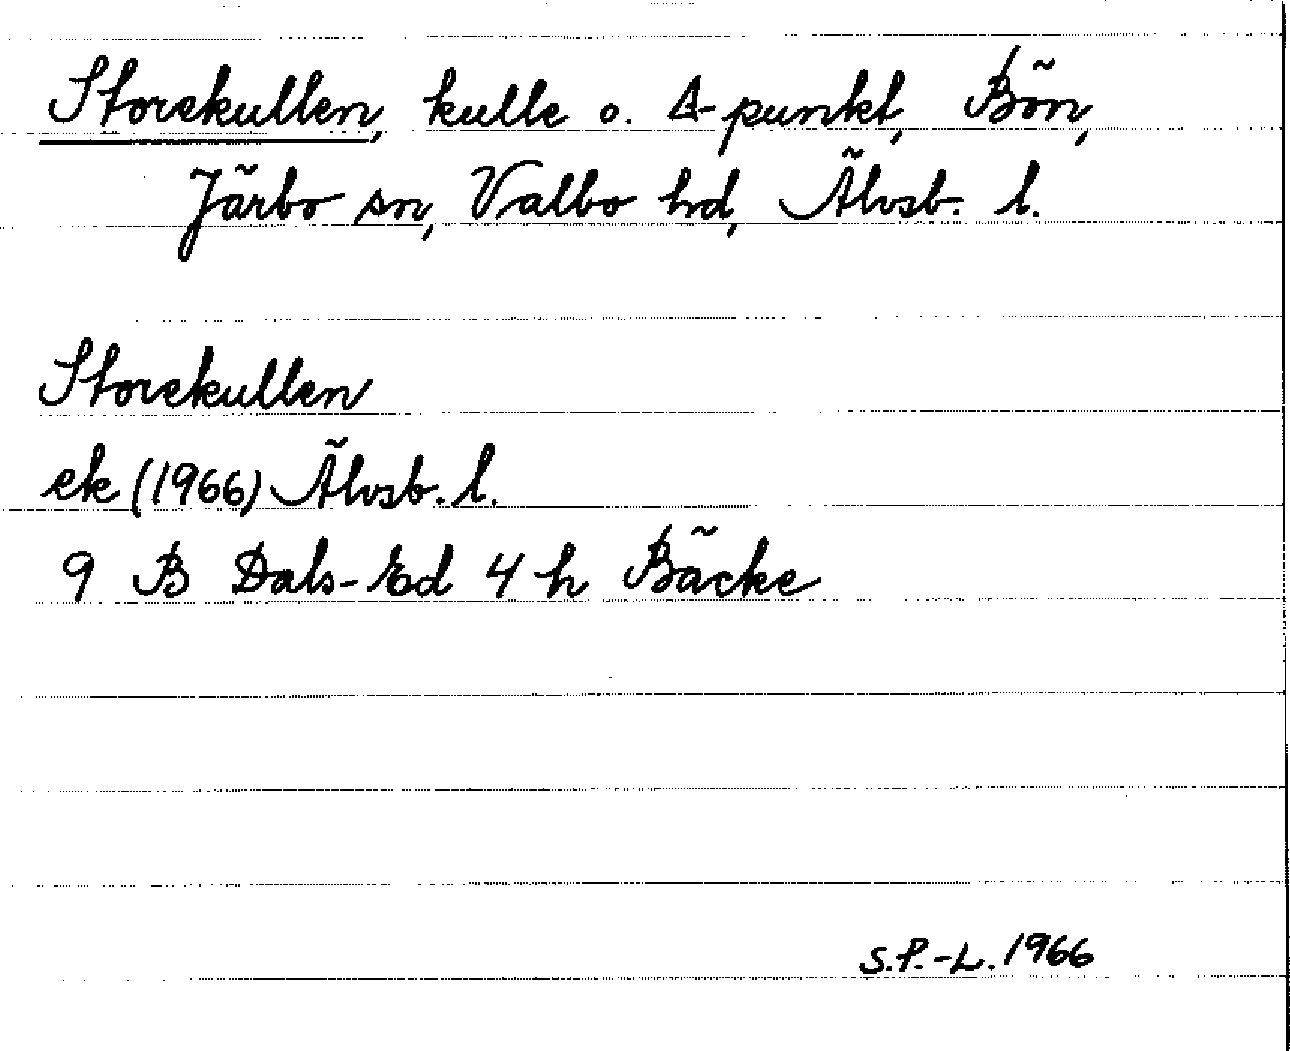 Storekullen, kulle o. Δ-punkt, Bön,
Järbo sn, Valbo hd, Älvsb. l.
Storekullen
ek (1966) Älvsb. l.
9 B Dals-Ed 4 h Bäcke
S.P.-L. 1966